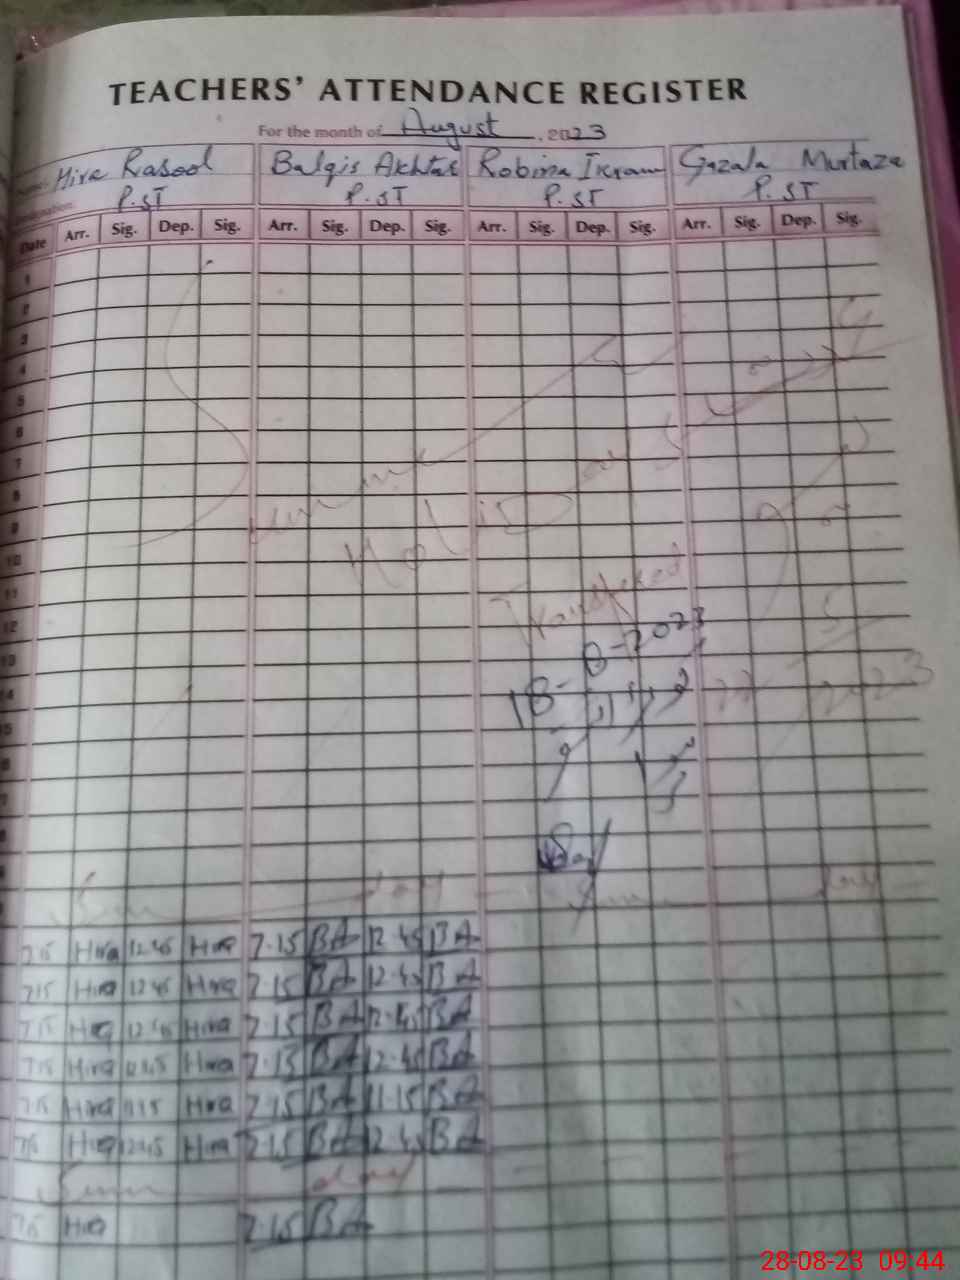 TEACHERS' ATTENDANCE REGISTER
For the month of August, 2023
Name: Hira Rasool Balqis Akhtar Robina Ikram Gazala Murtaza
Designation: P.ST P.ST P.ST P.ST
Date Arr. Sig. Dep. Sig. Arr. Sig. Dep. Sig. Arr. Sig. Dep. Sig. Arr. Sig. Dep. Sig.
1
2
3
4
5
6
7
8
9
10
11
12
13
14
Holiday
Transfered
18-8-2023
2023
Sun day Sun day
7.15 Hira 12.45 Hira 7.15 BA 12.45 BA
7.15 Hira 12.45 Hira 7.15 BA 12.45 BA
7.15 Hira 12.45 Hira 7.15 BA 12.45 BA
7.15 Hira 12.45 Hira 7.15 BA 12.45 BA
7.15 Hira 11.15 Hira 7.15 BA 11.15 BA
7.15 Hira 12.45 Hira 7.15 BA 12.45 BA
Sun day
7.15 Hira 7.15 BA
28-08-23 09:44